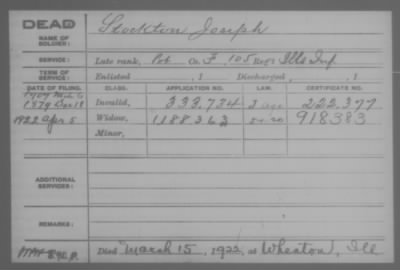 DEAD Stockton Joseph
NAME OF SOLDIER:
SERVICE: Late rank, Pvt Co. F, 105 Reg't Ills Inf
TERM OF SERVICE: Enlisted , 1 Discharged , 1
DATE OF FILING. CLASS. APPLICATION NO. LAW. CERTIFICATE NO.
1879 Dec 18 Invalid, 333,734 222,377
1922 Apr 5 Widow, 1188363 918383
Minor,
ADDITIONAL SERVICES:
REMARKS:
Died March 15, 1922, at Wheaton, Ill